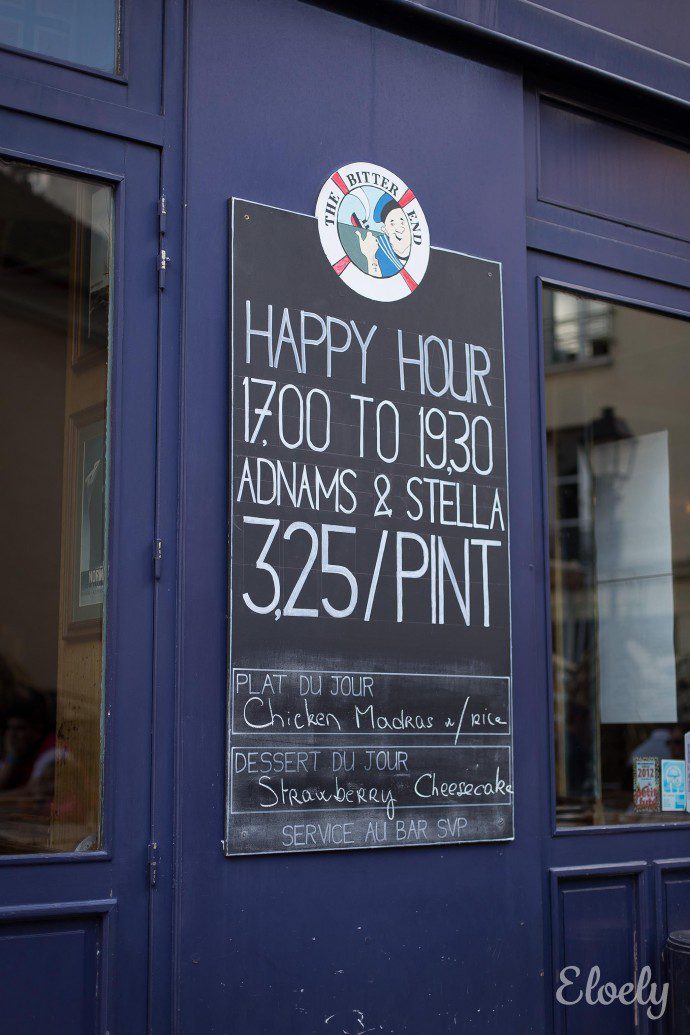 THE BITTER END
HAPPY HOUR
17,00 TO 19,30
ADNAMS & STELLA
3,25/PINT
PLAT DU JOUR
Chicken Madras w/rice
DESSERT DU JOUR
Strawberry Cheesecake
SERVICE AU BAR SVP
2012
Eloely